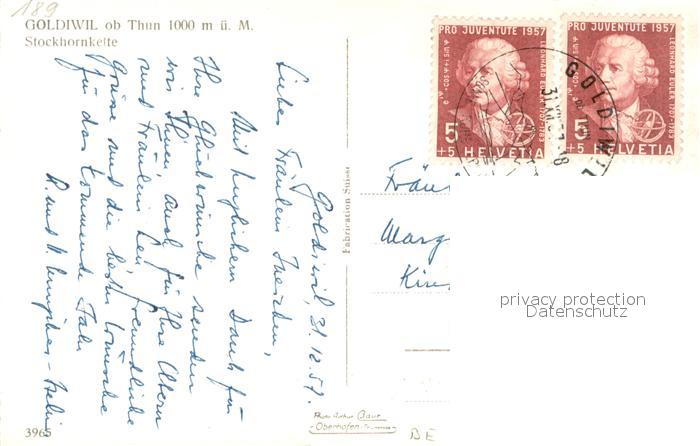 189
GOLDIWIL ob Thun 1000 m ü. M.
Stockhornkette
Goldiwil, 31.12.57.
Liebes Fräulein
Mit herzlichem Dank für
Ihre Glückwünsche senden
wir Ihnen, auch für Ihre Eltern
und Fräulein freundliche
Grüsse und die besten Wünsche
für das kommende Jahr
R. und
3965
Fabrication Suisse
Photo Arthur Baur
Oberhofen
BE
PRO JUVENTUTE 1957
LEONHARD EULER 1707-1783
5
+5 HELVETIA
PRO JUVENTUTE 1957
LEONHARD EULER 1707-1783
5
+5 HELVETIA
GOLDIWIL
Fräu
Marg
privacy protection
Datenschutz